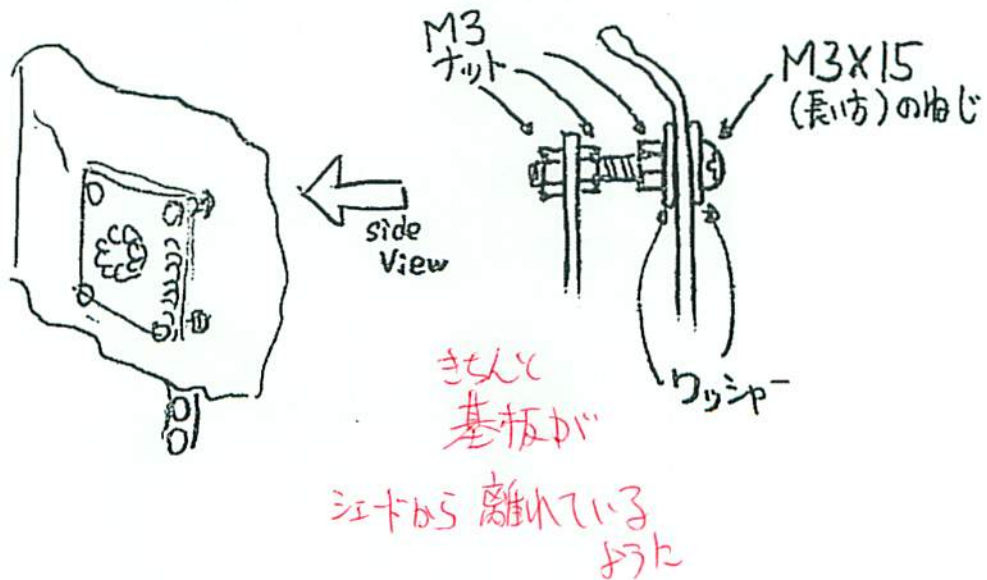 M3
ナット
M3×15
(長い方)のねじ
side
View
ワッシャー
きちんと
基板が
シェードから離れている
ように